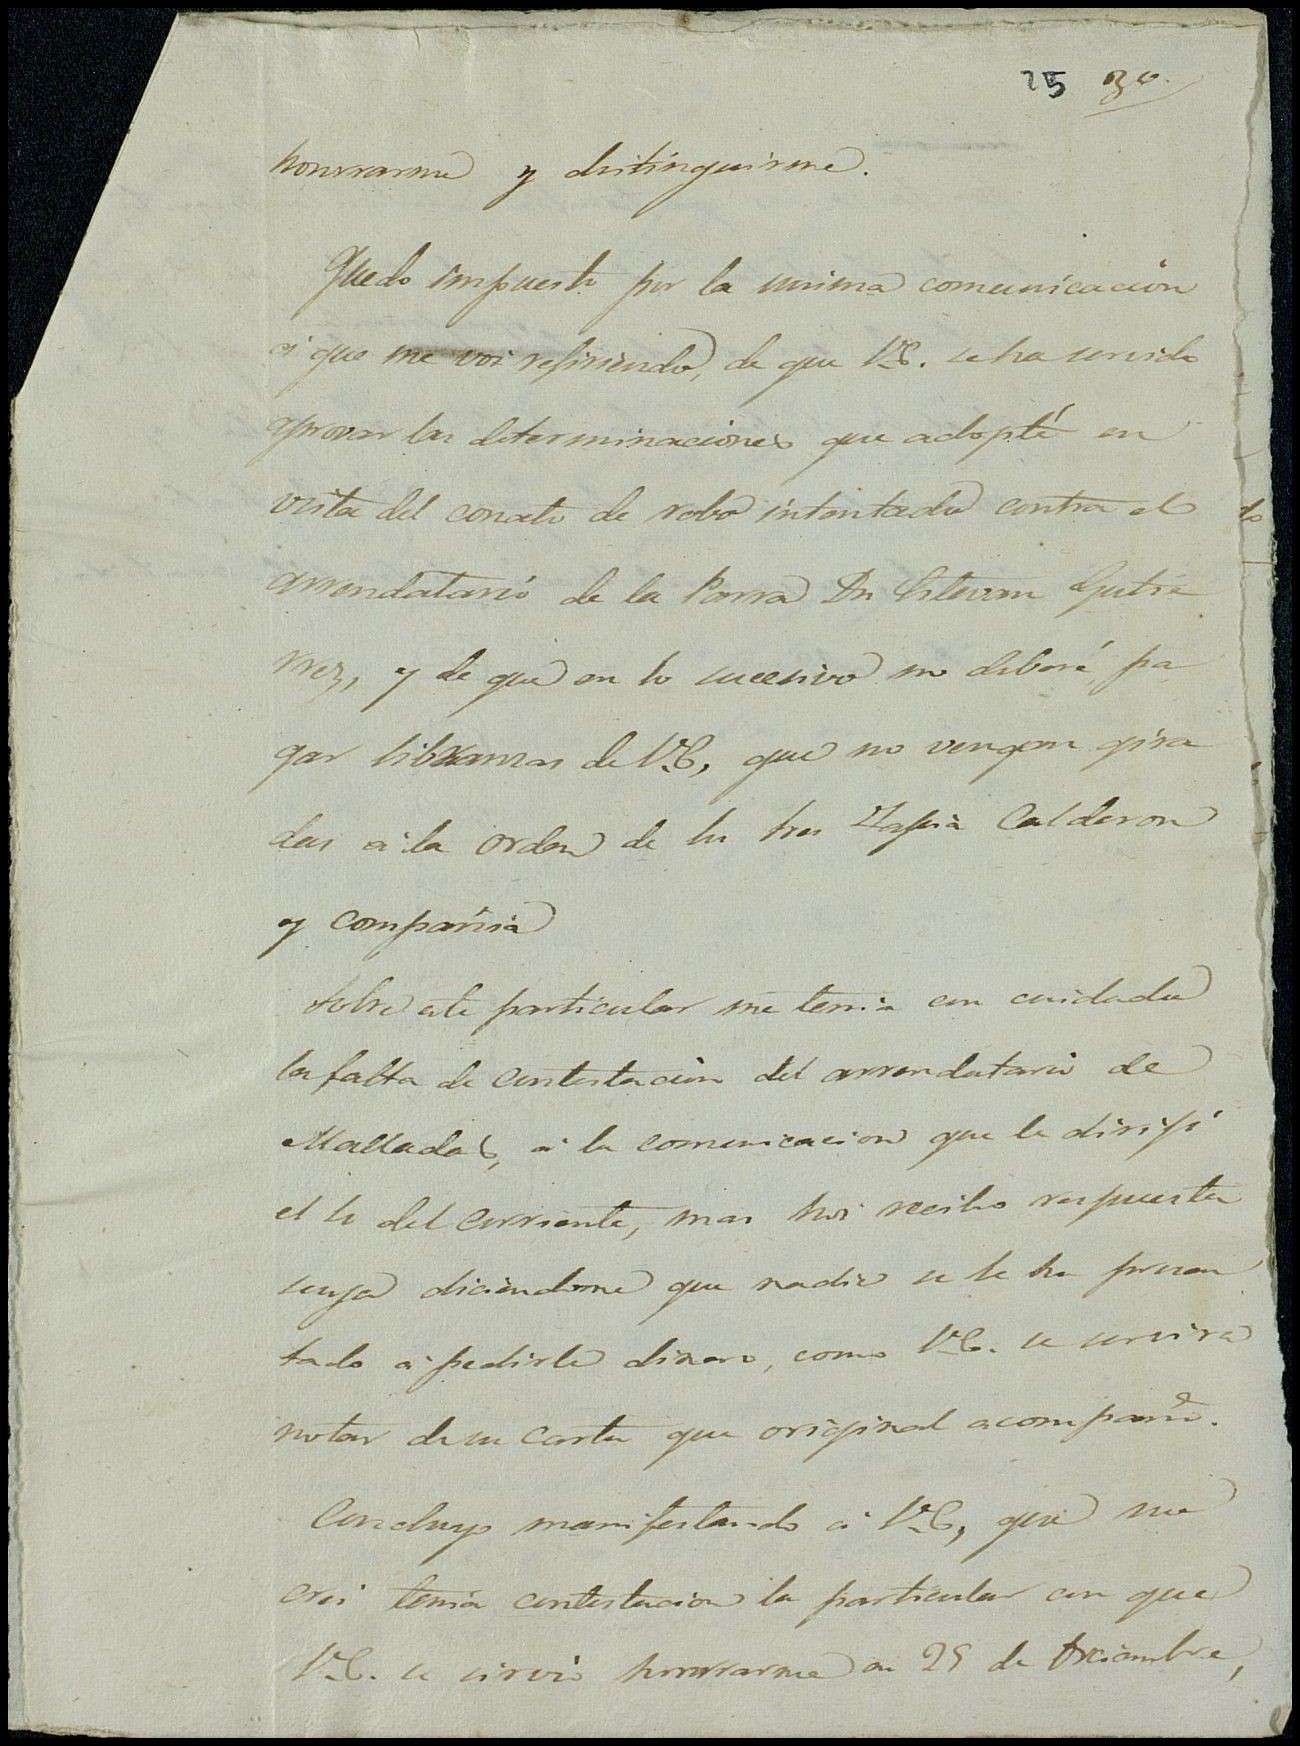 25 30.
honrrarme y distinguirme.
Quedo impuesto por la misma comunicacion
á que me voi refiriendo, de que V.E. se ha servido
aprovar las determinaciones que adopté en
vista del conato de robo intentado contra el
arrendatario de la Parra Dn Estevan Gutie
rrez, y de que en lo sucesivo no deberé pa
gar libranzas de V.E, que no vengan gira
das á la orden de los Sres Tapia Calderon
y compañia
Sobre este particular me tenia con cuidado
la falta de contestacion del arrendatario de
Malladas, á la comunicacion que le dirigí
el 10 del corriente, mas hoi recibo respuesta
suya diciendome que nadie se le ha presen
tado á pedirle dinero, como V.E. se servira
notar de su carta que original acompaño.
Concluyo manifestando á V.E, que no
crei tenia contestacion la particular con que
V.E. se sirvió honrrarme en 25 de Diciembre,